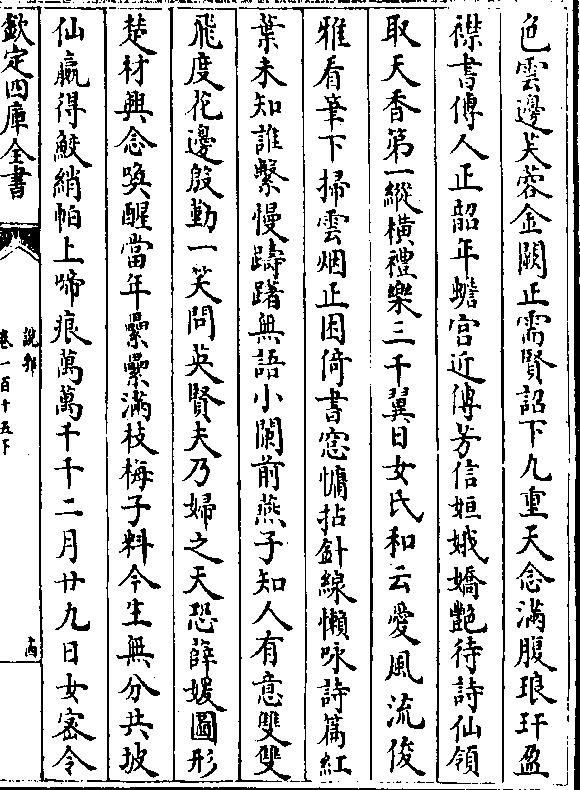 色雲邊芙蓉金闕正需賢詔下九重天念滿腹琅玕盈
襟書傳人正韶年蟾宮近傳芳信姮娥嬌艶待詩仙領
取天香第一縱橫禮樂三千翼日女氏和云愛風流俊
雅看筆下掃雲烟正困倚書窓慵拈針線懶咏詩篇紅
葉未知誰繫慢躊躇無語小闌前燕子知人有意雙雙
飛度花邊殷勤一笑問英賢夫乃婦之天恐薛媛圖形
楚材興念喚醒當年纍纍滿枝梅子料今生無分共坡
仙贏得鮫綃帕上啼痕萬萬千千二月廿九日女密令
欽定四庫全書
說郛
卷一百十五下